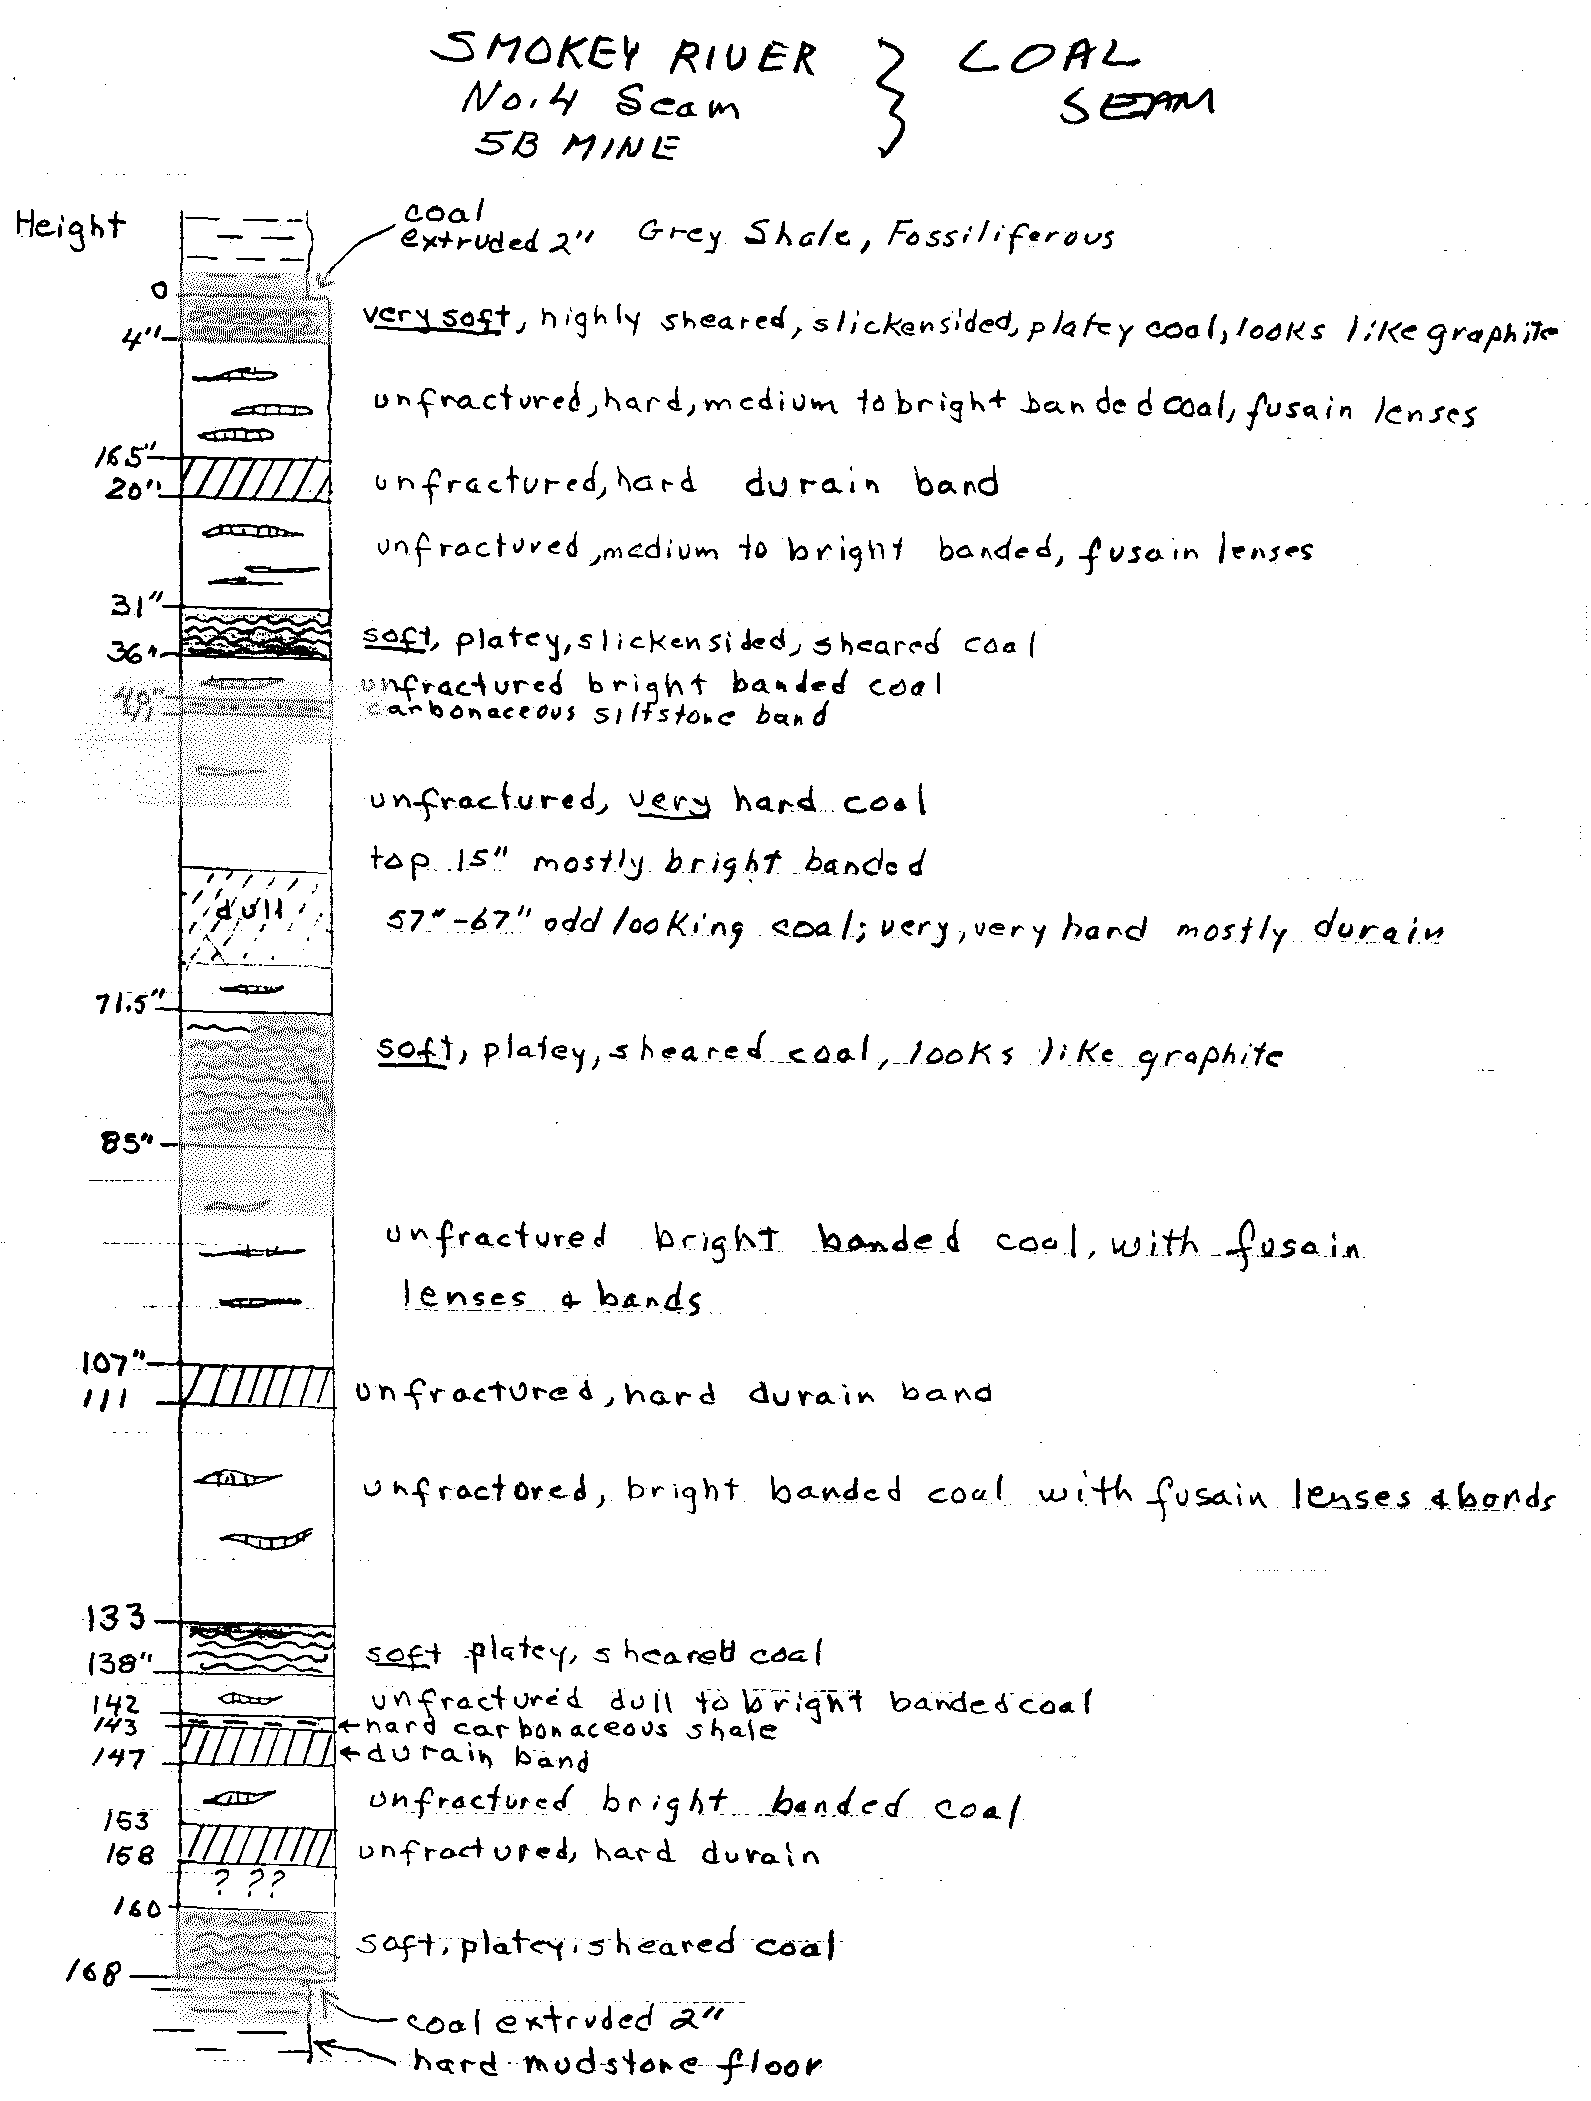 SMOKEY RIVER } COAL
No. 4 Seam SEAM
5B MINE
Height
coal
extruded 2" Grey Shale, Fossiliferous
0
very soft, highly sheared, slickensided, platey coal, looks like graphite
4"
unfractured, hard, medium to bright banded coal, fusain lenses
16.5"
20" unfractured, hard durain band
unfractured, medium to bright banded, fusain lenses
31"
soft, platey, slickensided, sheared coal
36"
unfractured bright banded coal
carbonaceous siltstone band
unfractured, very hard coal
top 15" mostly bright banded
dull 57"-67" odd looking coal; very, very hard mostly durain
71.5"
soft, platey, sheared coal, looks like graphite
85"
unfractured bright banded coal, with fusain
lenses & bands
107"
111 unfractured, hard durain band
unfractured, bright banded coal with fusain lenses & bands
133
138" soft platey, sheared coal
142 unfractured dull to bright banded coal
143 hard carbonaceous shale
147 durain band
unfractured bright banded coal
153
158 unfractured, hard durain
? ??
160
soft, platey, sheared coal
168
coal extruded 2"
hard mudstone floor